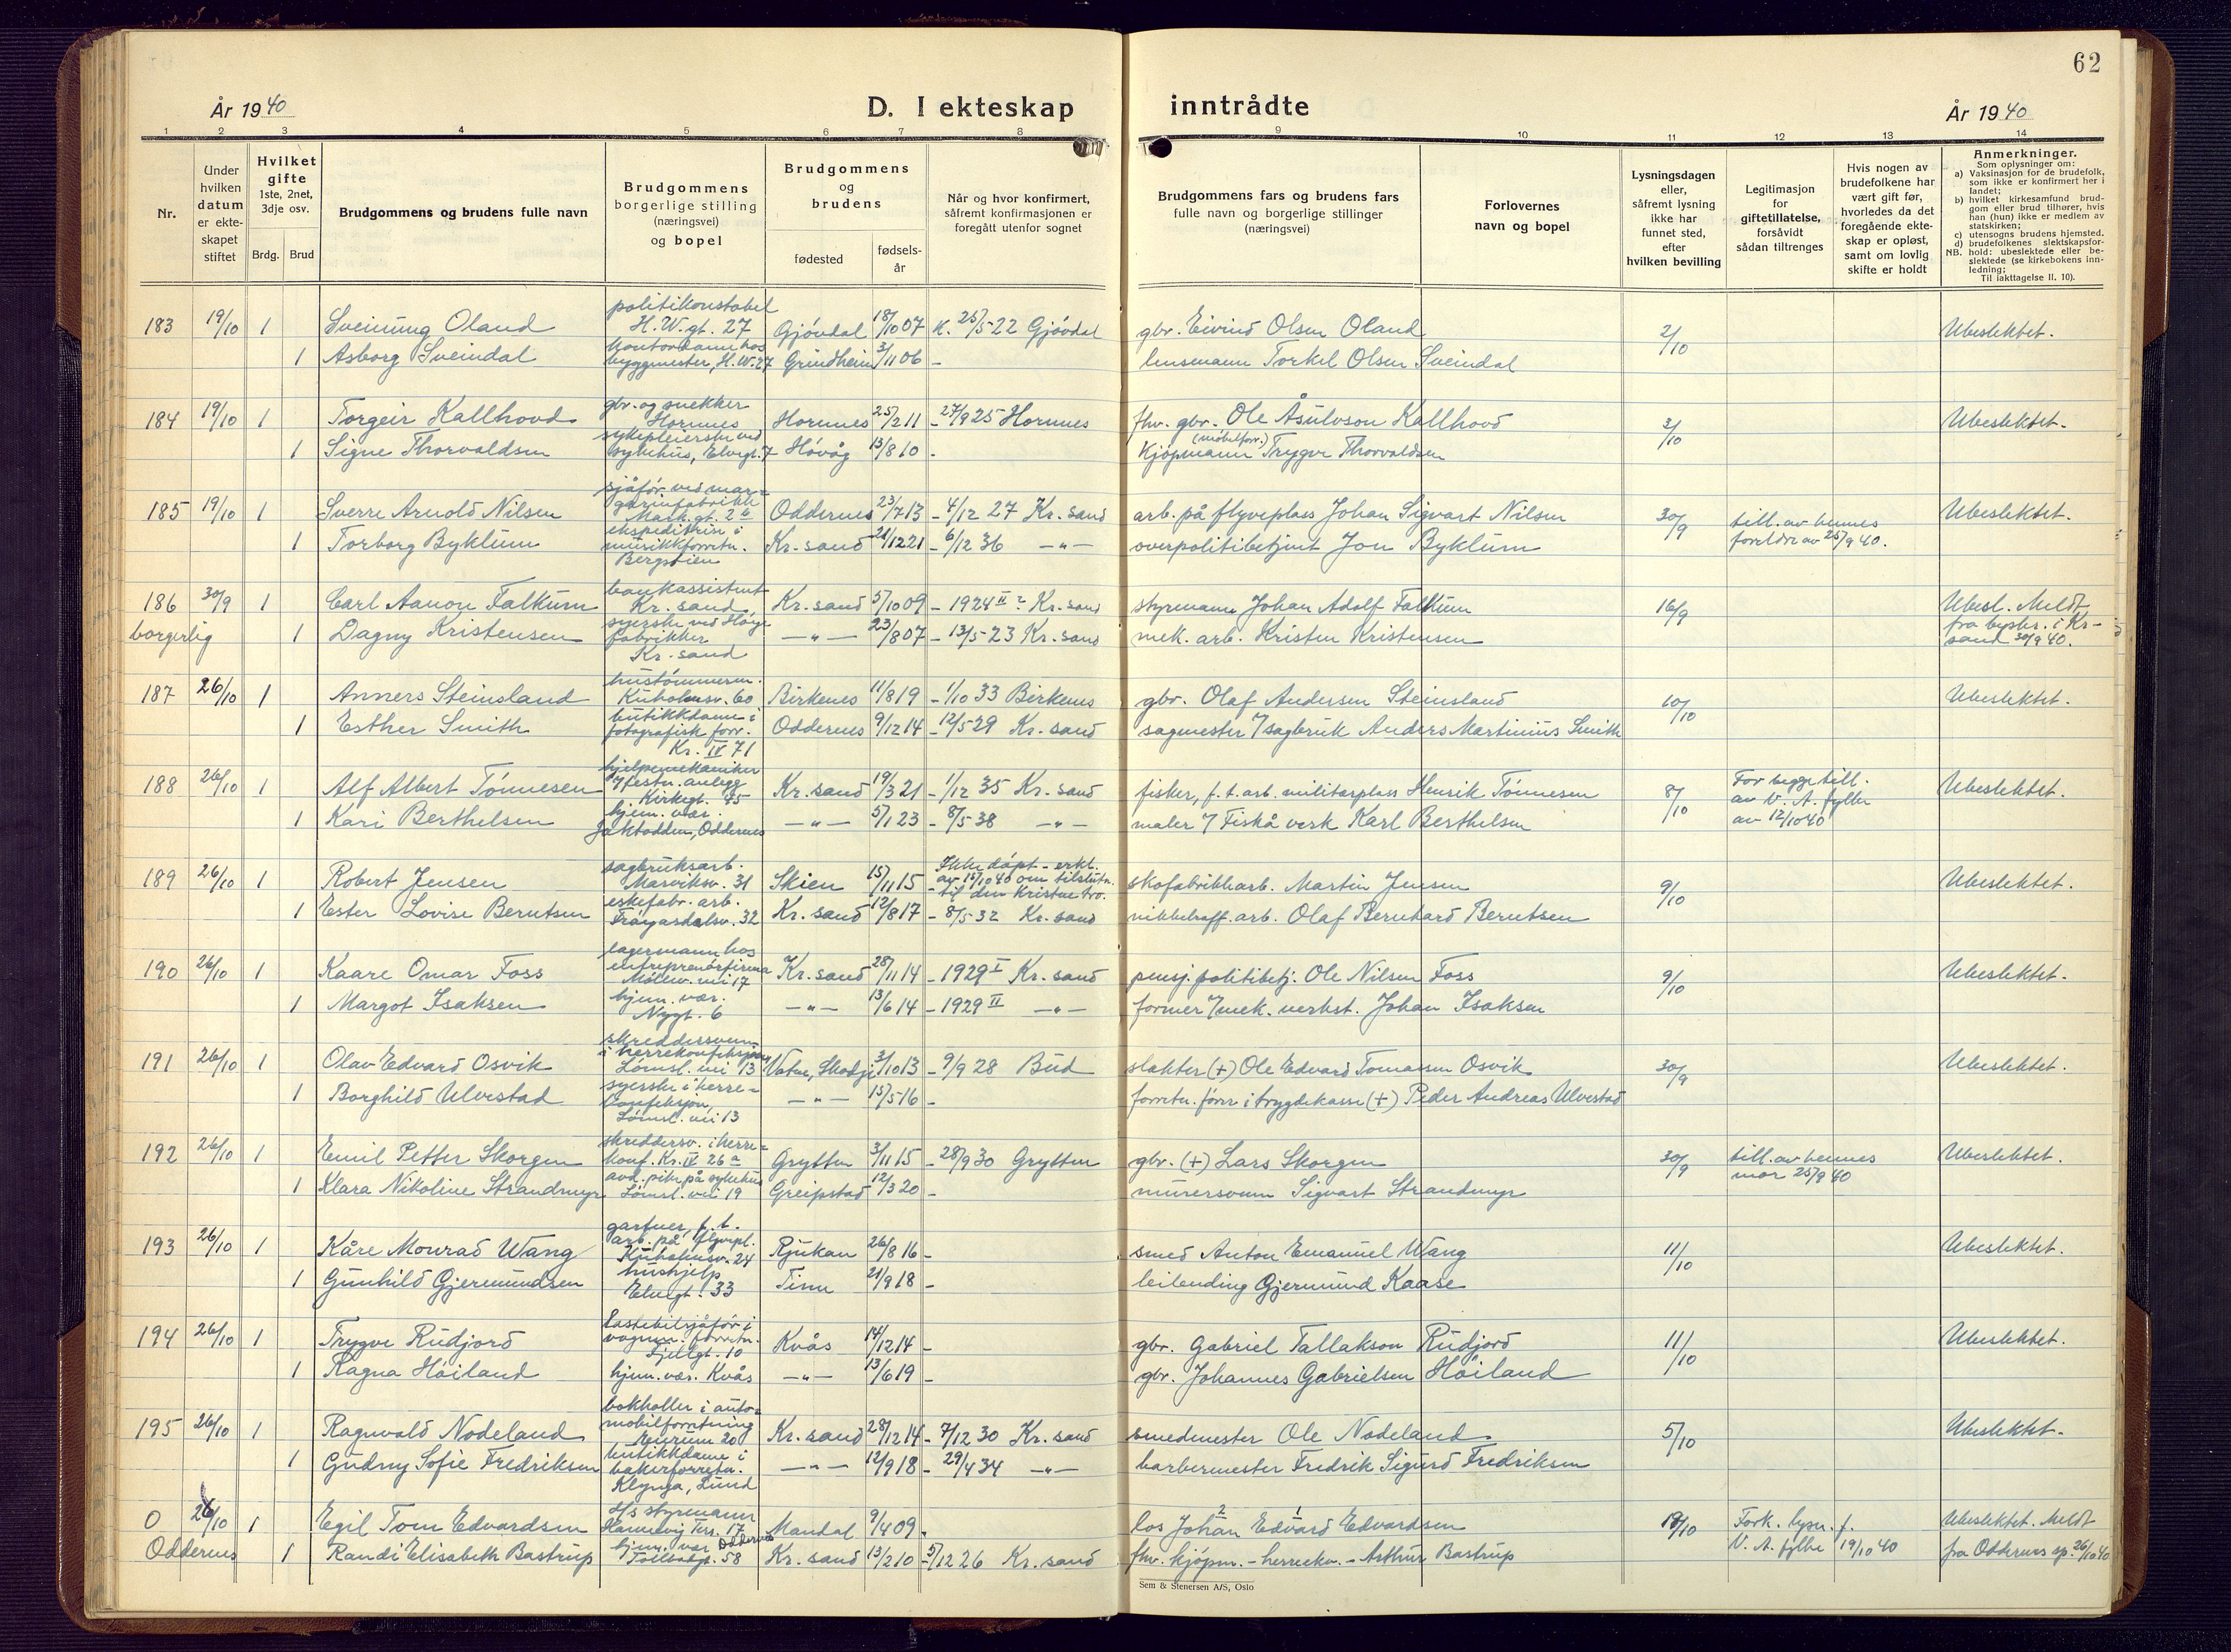 62
År 1940
D. I ekteskap
inntrådte
År 1940
1 2 3 4 5 6 7 8 9 10 11 12 13 14
Nr.
Under
hvilken
datum
er ekte-
skapet
stiftet
Hvilket
gifte
1ste, 2net,
3dje osv.
Brdg. Brud
Brudgommens og brudens fulle navn
Brudgommens
borgerlige stilling
(næringsvei)
og bopel
Brudgommens
og
brudens
fødested
fødsels-
år
Når og hvor konfirmert,
såfremt konfirmasjonen er
foregått utenfor sognet
Brudgommens fars og brudens fars
fulle navn og borgerlige stillinger
(næringsvei)
Forlovernes
navn og bopel
Lysningsdagen
eller,
såfremt lysning
ikke har
funnet sted,
efter
hvilken bevilling
Legitimasjon
for
giftetillatelse,
forsåvidt
sådan tiltrenges
Hvis nogen av
brudefolkene har
vært gift før,
hvorledes da det
foregående ekte-
skap er opløst,
samt om lovlig
skifte er holdt
Anmerkninger.
Som oplysninger om:
a) Vaksinasjon for de brudefolk,
som ikke er konfirmert her i
landet;
b) hvilket kirkesamfund brud-
gom eller brud tilhører, hvis
han (hun) ikke er medlem av
statskirken;
c) utensogns brudens hjemsted.
d) brudefolkenes slektskapsfor-
NB. hold: ubeslektede eller be-
slektede (se kirkebokens inn-
ledning;
Til iakttagelse II. 10).
183 19/10 1 Sveinung Oland politikonstabel H.W.gt. 27 Gjövdal 18/10 07 K. 25/5 22 Gjövdal gbr. Eivind Olsen Oland 2/10 Ubeslektet.
1 Asborg Sveindal kontordame hos byggmester, H.W. 27 Grindheim 3/11 06 - lensmann Torkel Olsen Sveindal
184 19/10 1 Torgeir Kallhovd gbr. og snekker Hornnes Hornnes 25/2 11 - 27/9 25 Hornnes fhv. gbr. Ole Åsulvson Kallhovd 3/10 Ubeslektet.
1 Signe Thorvaldsen sykepleierske ved sykehus, Elvegt. 7 Hövåg 13/8 10 - Kjöpmann (möbelforr.) Trygve Thorvaldsen
185 19/10 1 Sverre Arnold Nilsen sjåför ved mar=garinfabrikk Mark.gt. 2 b Oddernes 23/7 13 - 4/12 27 Kr.sand arb. på flyveplass Johan Sigvart Nilsen 30/9 till. av hennes foreldre av 25/9 40. Ubeslektet.
1 Torborg Byklum ekspeditrise i musikkforretn. Bergstien Kr.sand 21/12 21 - 6/12 36 -"- overpolitibetjent Jon Byklum
186 30/9 1 Carl Aanon Falkum bankassistent Kr.sand Kr.sand 5/10 09 - 1924 II ? Kr.sand styrmann Johan Adolf Falkum 16/9 Ubesl. Meldt fra byskr. i Kr-sand 30/9 40.
borgerlig 1 Dagny Kristensen syerske ved Höye fabrikker Kr.sand -"- 23/8 07 - 13/5 23 Kr.sand mek. arb. Kristen Kristensen
187 26/10 1 Anners Steinsland hustömmerm. Kuholmsv. 60 Birkenes 11/8 19 - 1/10 33 Birkenes gbr. Olaf Andersen Steinsland 10/10 Ubeslektet.
1 Esther Smith butikkdame i fotografisk forr. Kr. IV 71 Oddernes 9/12 14 - 12/5 29 Kr.sand sagmester v/ sagbruk Anders Martinius Smith
188 26/10 1 Alf Albert Tönnesen hjelpemekaniker v/ festn. anlegg Kirkegt. 45 Kr.sand 19/3 21 - 1/12 35 Kr.sand fisker, f.t. arb. militærplass Henrik Tönnesen 8/10 For begge till. av V. A. fylke av 12/10 40 Ubeslektet.
1 Kari Berthelsen hjem. vær. Jaktodden, Oddernes -"- 5/1 23 - 8/5 38 -"- maler v/ Fiskå verk Karl Berthelsen
189 26/10 1 Robert Jensen sagbruksarb. Marviksv. 31 Skien 15/11 15 Ikke döpt - erkl. av 15/10 40 om tilslutn. til den kristne tro. skofabrikkarb. Martin Jensen 9/10 Ubeslektet.
1 Ester Lovise Berntsen eskefabr. arb. Tröyasdalsv. 32 Kr.sand 12/8 17 - 8/5 32 Kr.sand nikkelraff. arb. Olaf Bernhard Berntsen
190 26/10 1 Kaare Omar Foss lagermann hos entreprenörfirma Möllev. vei 17 Kr.sand 28/11 14 - 1929 I Kr.sand pensj. politibetj. Ole Nilsen Foss 9/10 Ubeslektet.
1 Margot Isaksen hjem. vær. Nygt. 6 -"- 13/6 14 - 1929 II -"- former v/ mek. verkst. Johan Isaksen
191 26/10 1 Olav Edvard Osvik skreddersvenn i herrekonfeksjon Lömsl. vei 13 Vatne, Skodje 3/10 13 - 9/9 28 Bud slakter (+) Ole Edvard Tomassen Osvik 30/9 Ubeslektet.
1 Borghild Ulvestad syerske i herre=konfeksjon, Lömsl. vei 13 -"- 15/5 16 - forretn. förer i trygdekasse (+) Peder Andreas Ulvestad
192 26/10 1 Emil Petter Skorgen skreddersv. i herre=konf. Kr. IV 26 a Grytten 3/11 15 - 28/9 30 Grytten gbr. (+) Lars Skorgen 30/9 till. av hennes mor 25/9 40 Ubeslektet.
1 Klara Nikoline Strandmyr avd. pike på sykehus Lömsl. vei 19 Greipstad 12/3 20 - murersvenn Sigvart Strandmyr
193 26/10 1 Kåre Monrad Wang gartner, f.t. arb. på flyvepl. Kuholmsv. 24 Rjukan 26/8 16 - smed Anton Emanuel Wang 11/10 Ubeslektet.
1 Gunhild Gjermundsen hushjelp Elvegt. 33 Tinn 21/9 18 - leilending Gjermund Kaase
194 26/10 1 Trygve Rudjord lastebilsjåför i vognm. forretn. Fjellgt. 10 Kvås 14/12 14 - gbr. Gabriel Tallakson Rudjord 11/10 Ubeslektet.
1 Ragna Höiland hjem. vær. Kvås -"- 13/6 19 - gbr. Johannes Gabrielsen Höiland
195 26/10 1 Ragnvald Nodeland bokholder i auto=mobilforretning 20 Kr.sand 28/12 14 - 7/12 30 Kr.sand smedmester Ole Nodeland 5/10 Ubeslektet.
1 Gudny Sofie Fredriksen butikkdame i bakerforretn. Klynga, Lund -"- 12/9 18 - 29/4 34 -"- barbermester Fredrik Sigurd Fredriksen
O 26/10 1 Egil Tom Edvardsen d/s styrmann Hannevig Ters. 17 Oddernes Mandal 9/4 09 - los Johan 2 Edvard 1 Edvardsen 18/10 Fork. lysn. f. V. A. fylke 19/10 40 Ubeslektet. Meldt fra Oddernes sp. 26/10 40
Oddernes 1 Randi Elisabeth Bastrup hjem. vær Tollbodgt. 58 Kr.sand 13/2 10 - 5/12 26 Kr.sand fhv. kjöpm. - herreekv. - Arthur Bastrup
Sem & Stenersen A/S, Oslo